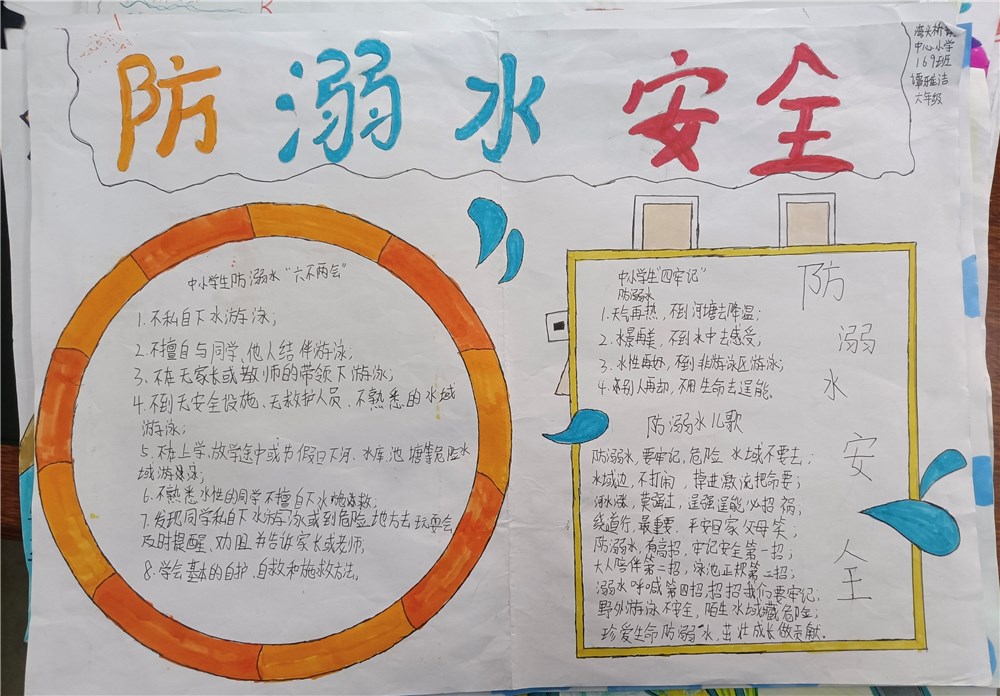 防溺水安全
海头桥镇
中心小学
169班
谭雅洁
六年级
中小学生防溺水“六不两会”
1.不私自下水游泳；
2.不擅自与同学、他人结伴游泳；
3、不在无家长或教师的带领下游泳；
4、不到无安全设施、无救护人员、不熟悉的水域
游泳；
5、不在上学、放学途中或节假日下河、水库、池塘等危险水
域游泳；
6、不熟悉水性的同学不擅自下水施救；
7、发现同学私自下水游泳或到危险地方去玩耍会
及时提醒、劝阻并告诉家长或老师；
8、学会基本的自护、自救和施救方法。
中小学生“四牢记”
防溺水
1.天气再热，不到河塘去降温；
2.水景再美，不到水中去感受；
3.水性再好，不到非游泳区游泳；
4.别人再劝，不用生命去逞能。
防溺水儿歌
防溺水，要牢记，危险水域不要去；
水域边，不打闹，掉进激流把命要；
河水涨，莫强过，逞强逞能必招祸，
绕道行，最重要，平安回家父母笑，
防溺水，有高招，牢记安全第一招；
大人陪伴第二招，泳池正规第三招；
溺水呼喊第四招，招招我们要牢记，
野外游泳不安全，陌生水域藏危险；
珍爱生命防溺水，茁壮成长做贡献。
防
溺
水
安
全